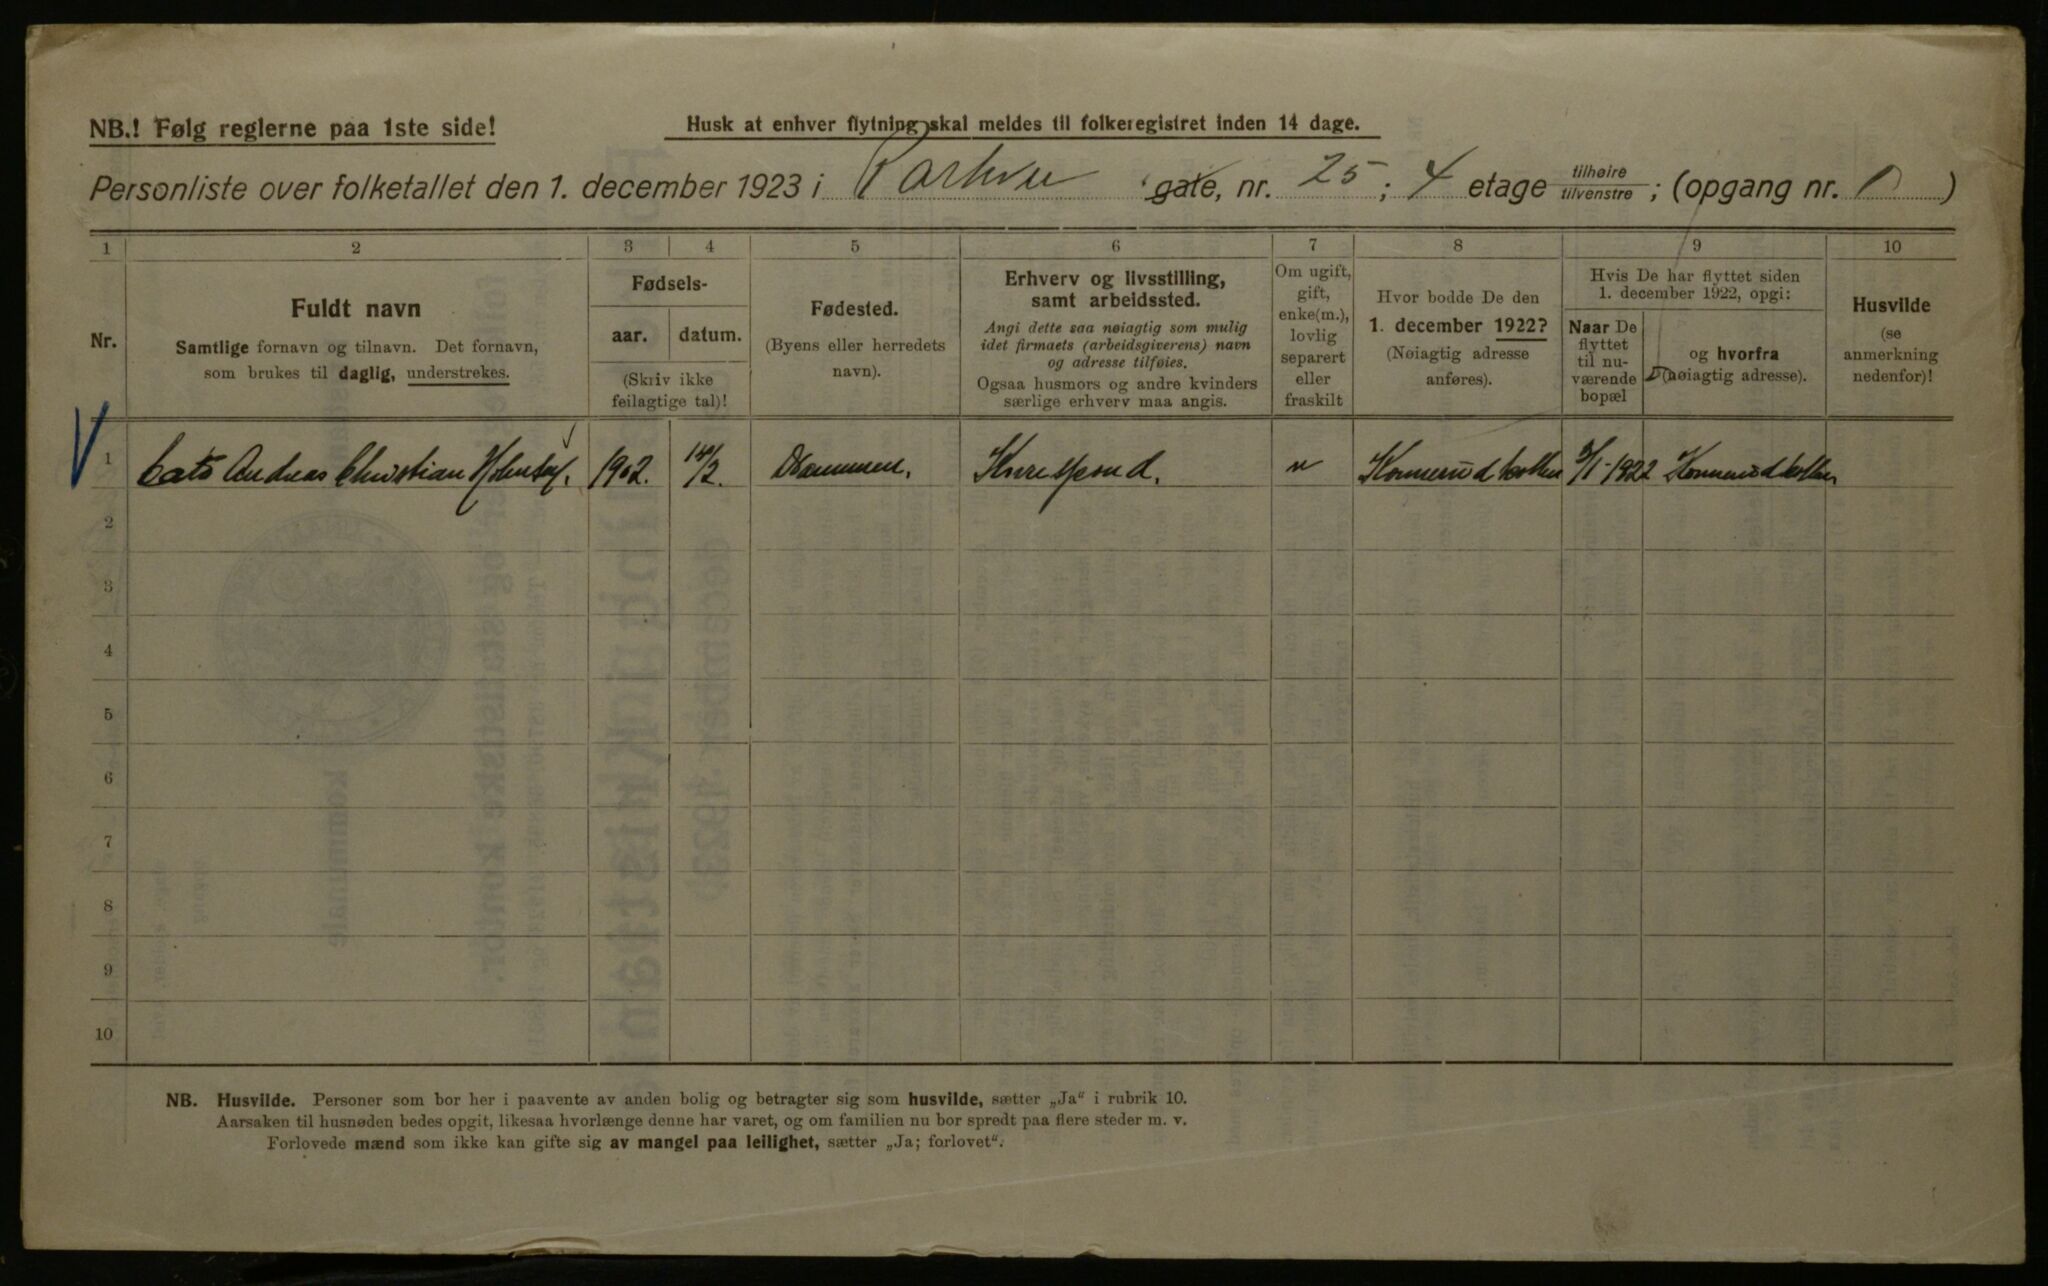 NB.! Følg reglerne paa 1ste side!
Husk at enhver flytning skal meldes til folkeregistret inden 14 dage.
Personliste over folketallet den 1. december 1923 i Parkvei gate, nr. 25; 4 etage tilhøire/tilvenstre; (opgang nr. )
1 2 3 4 5 6 7 8 9 10
Nr.
Fuldt navn
Samtlige fornavn og tilnavn. Det fornavn,
som brukes til daglig, understrekes.
Fødsels-
aar. datum.
(Skriv ikke
feilagtige tal)!
Fødested.
(Byens eller herredets
navn).
Erhverv og livsstilling,
samt arbeidssted.
Angi dette saa nøiagtig som mulig
idet firmaets (arbeidsgiverens) navn
og adresse tilføies.
Ogsaa husmors og andre kvinders
særlige erhverv maa angis.
Om ugift,
gift,
enke(m.),
lovlig
separert
eller
fraskilt
Hvor bodde De den
1. december 1922?
(Nøiagtig adresse
anføres).
Hvis De har flyttet siden
1. december 1922, opgi:
Naar De
flyttet
til nu-
værende
bopæl
og hvorfra
(nøiagtig adresse).
Husvilde
(se
anmerkning
nedenfor)!
1 Cato Andreas Christian 1902. 14/2. Drammen. Korrespond. u Konnerudkollen 1922 Konnerudkollen
2
3
4
5
6
7
8
9
10
NB. Husvilde. Personer som bor her i paavente av anden bolig og betragter sig som husvilde, sætter „Ja“ i rubrik 10.
Aarsaken til husnøden bedes opgit, likesaa hvorlænge denne har varet, og om familien nu bor spredt paa flere steder m. v.
Forlovede mænd som ikke kan gifte sig av mangel paa leilighet, sætter „Ja; forlovet“.